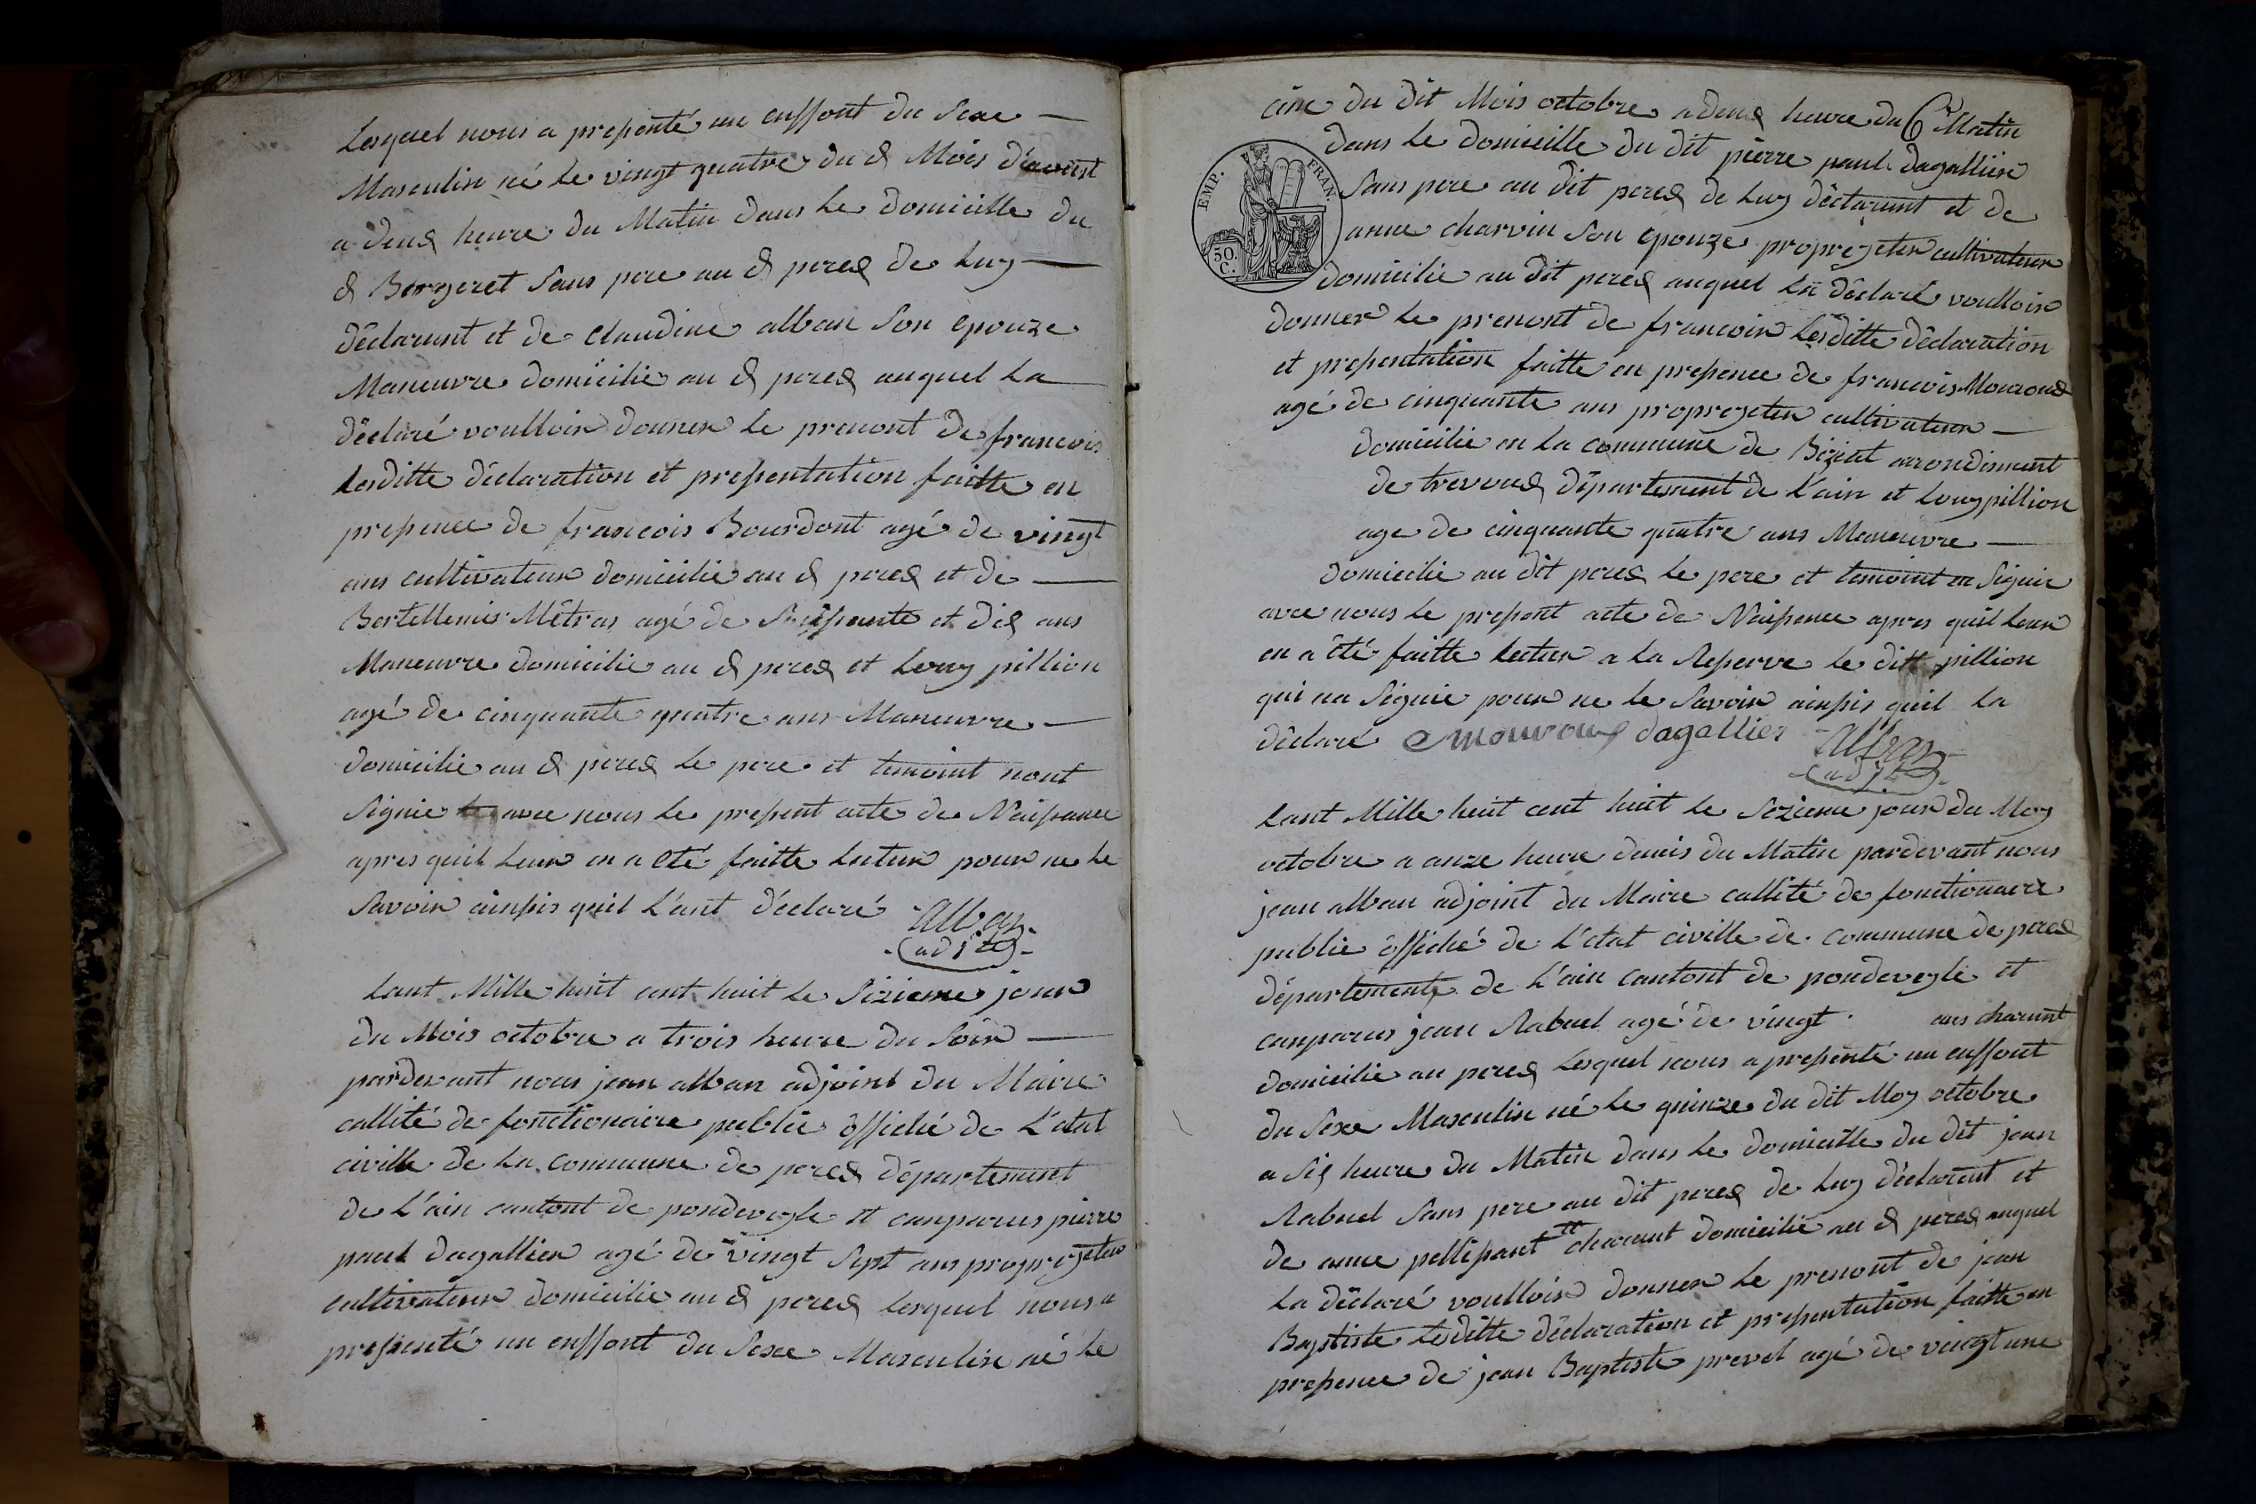 Lesquel nous a presenté un enffont du Sexe
Masculin né le vingt quatre du d Mois d'avout
a deux heure du Matin dans le domicille du
d Bergeret Sans pere au d perex de luy
déclarunt et de Claudine alban Son epouze
Maneuvre domicilie au d perex auquel La
déclaré voulloir donner le prenont de francois
Lesditte déclaration et presentation faitte en
presence de francois Bourdont agé de vingt
ans cultivateur domicilie au d perex et de
Bertellemis Métras agé de Soissante et dix ans
Maneuvre domicilie au d perex et Louy pillion
agé de cinquante quatre ans Maneuvre
domicilie au d perex le pere et temoint nont
Signie avec nous le present acte de Naissance
apres quil leur en a eté faitte lectur pour ne le
Savoir ainssis quil L'ant déclaré Alban
adjt
Lant Mille huit cent huit le Sizieme jour
du Mois octobre a trois heure du Soir
pardevant nous jean alban adjoint du Maire
callité de fonctionaire publie officié de L'état
civille de La Commune de perex département
de L'ain cantont de pondevegle et canparus pierre
paul dagallier agé de vingt Sept ans propryeter
cultivateur domicilie au d perex Lesquel nous a
presenté un enffont du Sexe Masculin né le
6
cinc du dit Mois octobre a deux heure du Matin
dans le domicille du dit pierre paul dagallier
Sans pere au dit perex de luy déclarunt et de
anne charvin Son epouze propryeter cultivateur
domicilie au dit perex auquel La déclaré voulloir
donner le prenont de francoir Lesditte déclaration
et presentation faitte en presence de francois Mouroux
agé de cinquante ans propryeter cultivateur
domicilie en la commune de Biziat arrondissment
de trevoux département de L'ain et Louy pillion
age de cinquante quatre ans Maneuvre
domicilie au dit perex le pere et temoint on Signie
avec nous le present acte de Naissence apres quil leur
en a été faitte lectur a la Reserve le ditt pillion
qui na Signie pour ne le Savoir ainssis quil la
déclaré Mouroux dagallier Alban
adjt
EMP. FRAN.
50. C.
Lant Mille huit cent huit le Sezieme jour du Moy
octobre a onze heure demis du Matin pardevant nous
jean alban adjoint du Maire callité de fonctionaire
publie officié de L'état civille de commune de perex
département de L'ain cantont de pondevegle et
canparus jean Rabuel agé de vingt ans charunt
domicilie au perex Lesquel nous a presenté un enffont
du Sexe Masculin né le quinze du dit Moy octobre
a Six heure du Matin dans le domicille du dit jean
Rabuel Sans pere au dit perex de luy déclarent et
de anne pellissant charunt domicilie au d perex auquel
La déclaré voulloir donner le prenont de jean
Baptiste Lesditte déclaration et presentation faitte en
presence de jean Baptiste prevel agé de veingt une